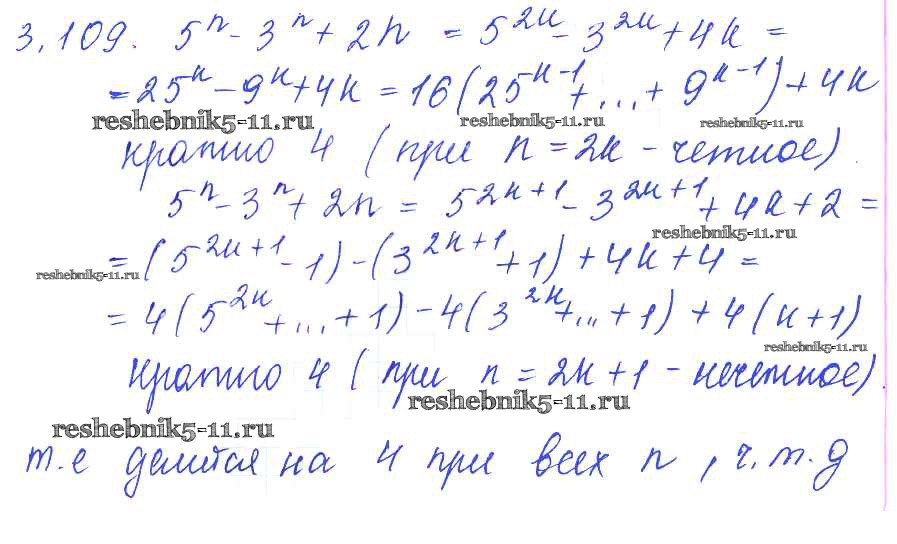 3.109. 5^n - 3^n + 2n = 5^{2k} - 3^{2k} + 4k =
= 25^k - 9^k + 4k = 16(25^{k-1} + ... + 9^{k-1}) + 4k
reshebnik5-11.ru reshebnik5-11.ru reshebnik5-11.ru
кратно 4 (при n = 2k - четное).
5^n - 3^n + 2n = 5^{2k+1} - 3^{2k+1} + 4k + 2 =
reshebnik5-11.ru
= (5^{2k+1} - 1) - (3^{2k+1} + 1) + 4k + 4 =
reshebnik5-11.ru
= 4(5^{2k} + ... + 1) - 4(3^{2k} + ... + 1) + 4(k+1)
reshebnik5-11.ru
кратно 4 (при n = 2k + 1 - нечетное)
reshebnik5-11.ru
reshebnik5-11.ru
т.е делится на 4 при всех n, ч.т.д